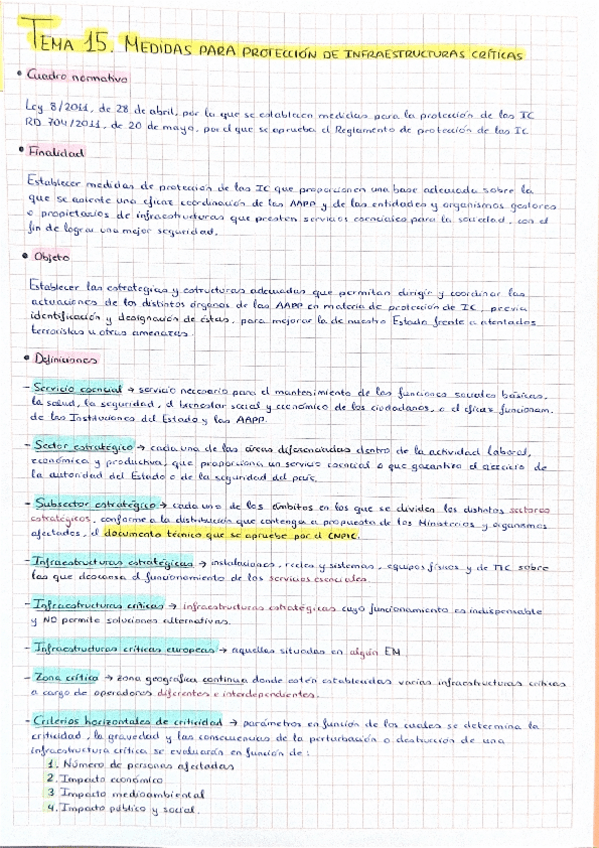 TEMA 15. MEDIDAS PARA PROTECCIÓN DE INFRAESTRUCTURAS CRÍTICAS
• Cuadro normativo
Ley 8/2011, de 28 de abril, por la que se establecen medidas para la protección de las IC
RD 704/2011, de 20 de mayo, por el que se aprueba el Reglamento de protección de las IC
• Finalidad
Establecer medidas de protección de las IC que proporcionen una base adecuada sobre la
que se asiente una eficaz coordinación de las AAPP y de las entidades y organismos gestores
o propietarios de infraestructuras que presten servicios esenciales para la sociedad, con el
fin de lograr una mejor seguridad.
• Objeto
Establecer las estrategias y estructuras adecuadas que permitan dirigir y coordinar las
actuaciones de los distintos órganos de las AAPP en materia de protección de IC, previa
identificación y designación de éstas, para mejorar la de nuestro Estado frente a atentados
terroristas u otras amenazas.
• Definiciones
- Servicio esencial → servicio necesario para el mantenimiento de las funciones sociales básicas,
la salud, la seguridad, el bienestar social y económico de los ciudadanos, o el eficaz funcionam.
de las Instituciones del Estado y las AAPP.
- Sector estratégico → cada una de las áreas diferenciadas dentro de la actividad laboral,
económica y productiva, que proporciona un servicio esencial o que garantiza el ejercicio de
la autoridad del Estado o de la seguridad del país.
- Subsector estratégico → cada uno de los ámbitos en los que se dividen los distintos sectores
estratégicos, conforme a la distribución que contenga a propuesta de los Ministerios y organismos
afectados, el documento técnico que se apruebe por el CNPIC.
- Infraestructuras estratégicas → instalaciones, redes y sistemas, equipos físicos y de TIC sobre
las que descansa el funcionamiento de los servicios esenciales.
- Infraestructuras críticas → infraestructuras estratégicas cuyo funcionamiento es indispensable
y NO permite soluciones alternativas.
- Infraestructuras críticas europeas → aquellas situadas en algún EM
- Zona crítica → zona geográfica continua donde estén establecidas varias infraestructuras críticas
a cargo de operadores diferentes e interdependientes.
- Criterios horizontales de criticidad → parámetros en función de los cuales se determina la
criticidad, la gravedad y las consecuencias de la perturbación o destrucción de una
infraestructura crítica se evaluarán en función de:
1. Número de personas afectadas
2. Impacto económico
3 Impacto medioambiental
4. Impacto público y social.